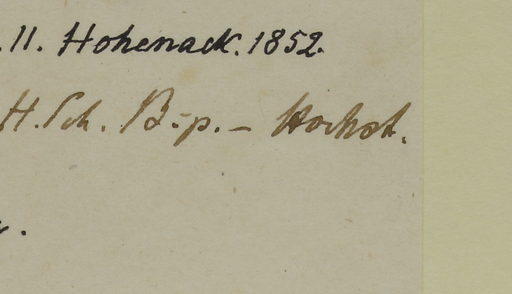 . 11. Hohenack. 1852.
H. Sch. Bip. - Hochst.